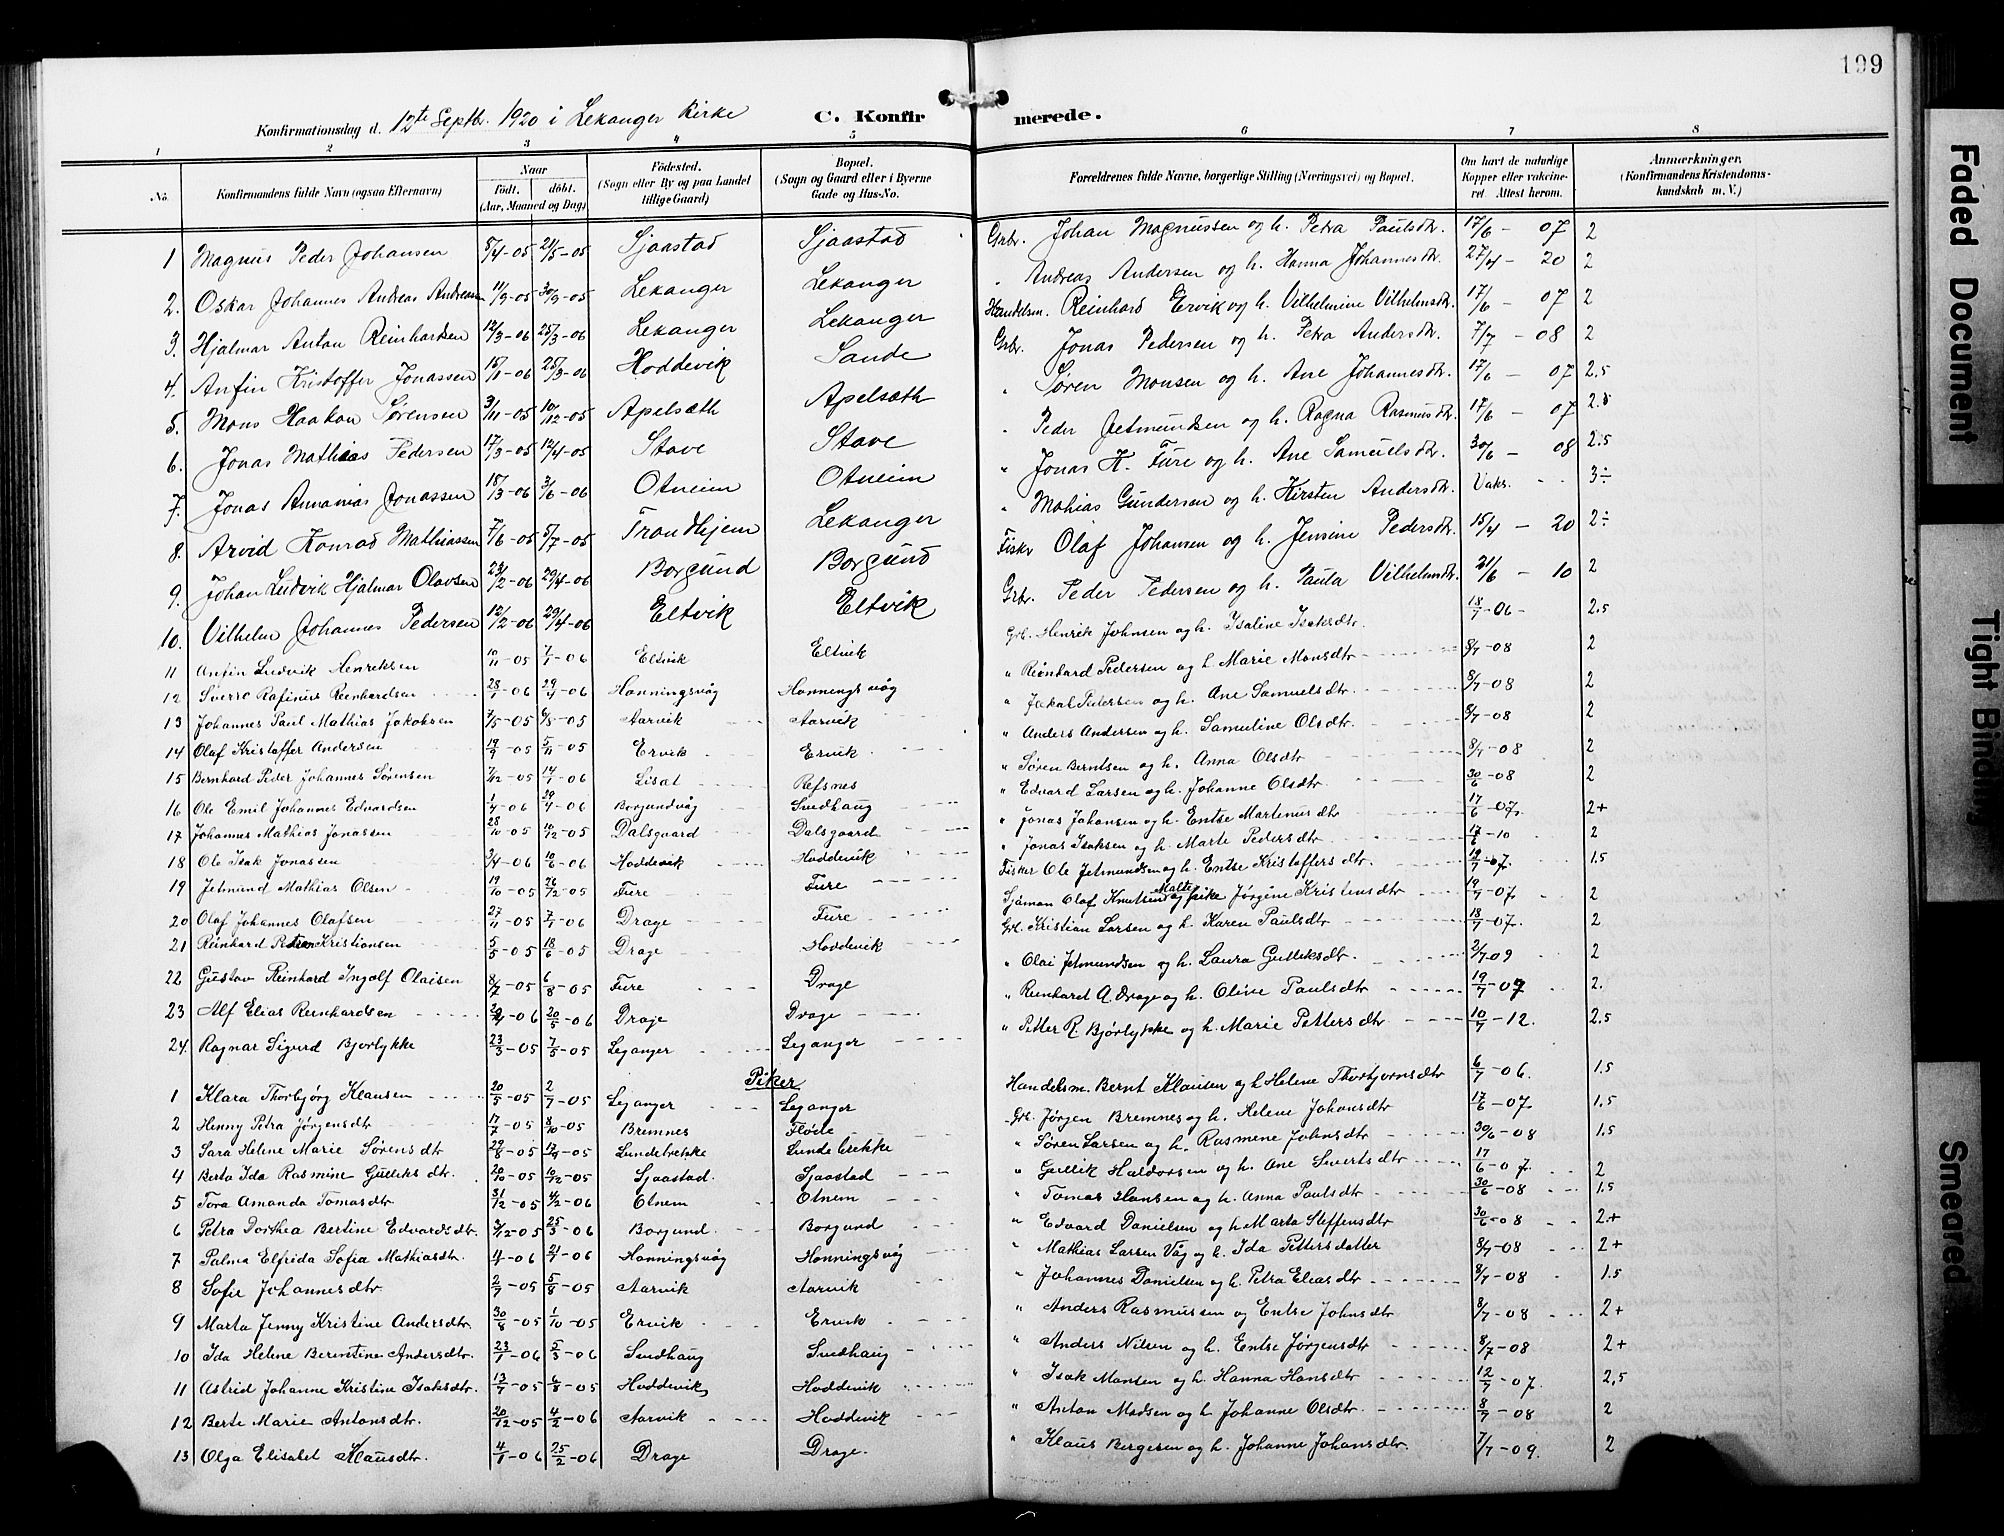 199
Konfirmationsdag d. 12te Septbr. 1920 i Lekanger Kirke C. Konfirmerede.
1 2 3 4 5 6 7 8
No. Konfirmandens fulde Navn (ogsaa Efternavn) Naar födt. döbt. (Aar, Maaned og Dag) Födested. (Sogn eller By og paa Landet tillige Gaard) Bopæl. (Sogn og Gaard eller i Byerne Gade og Hus-No. Forældrenes fulde Navne, borgerlige Stilling (Næringsvei) og Bopæl. Om havt de naturlige Kopper eller vaccineret. Attest herom. Anmærkninger. (Konfirmandens Kristendomskundskab m. V.)
1 Magnus Peder Johansen 8/4-05 21/5-05 Sjaastad Sjaastad Grbr. Johan Magnussen og h. Petra Paulsdtr. 17/6 - 07 2
2. Oskar Johannes Andreas Andreassen 11/9-05 30/9-05 Lekanger Lekanger " Andreas Andersen og h. Hanna Johannesdtr. 27/4 - 20 2
3. Hjalmar Anton Reinhardsen 12/3-06 25/3-06 Lekanger Lekanger Handelsm. Reinhard Ervik og h. Vilhelmine Vilhelmsdtr. 17/6 - 07 2
4. Anfin Kristoffer Jonassen 15/1-06 25/3-06 Hoddevik Sande Grbr. Jonas Pedersen og h. Petra Andersdtr. 7/7 - 08 2
5. Mons Haakon Sørensen 3/11-05 10/12-05 Apelsæth Apelsæth " Søren Monsen og h. Ane Johannesdtr. 17/6 - 07 2.5
6. Jonas Mathias Pedersen 17/3-05 12/4-05 Stave Stave " Peder Jetmundsen og h. Ragna Rasmusdtr. 17/6 - 07 2.5
7. Jonas Ananias Jonassen 18/3-06 3/6-06 Otneim Otneim " Jonas K. Fure og h. Ane Samuelsdtr. 30/6 - 08 2.5
8. Arvid Konrad Mathiassen 7/6-05 5/7-05 Trondhjem Lekanger " Mathias Gundersen og h. Kirsten Andersdtr. Vakr. 3÷
9. Johan Ludvik Hjalmar Olavsen 24/2-06 29/4-06 Borgund Borgund Fisker Olaf Johansen og h. Jensine Pedersdtr. 15/4 - 20 2÷
10. Vilhelm Johannes Pedersen 12/2-06 29/4-06 Eltvik Eltvik Grbr. Peder Pedersen og h. Paula Vilhelmsdtr. 21/6 - 10 2
11 Anfin Ludvik Henriksen 10/11-05 7/1-06 Eltvik Eltvik Grb. Henrik Johnsen og h. Isaline Isaksdtr. 18/7-06- 2.5
12 Sverre Rafinus Reinhardsen 28/1-06 29/4-06 Honningsvåg Honningsvåg " Reinhard Pedersen og h. Marie Monsdtr 8/7-08 2
13 Johannes Paul Mathias Jakobsen 7/5-05 6/5-05 Aarvik Aarvik " Jakob Pedersen og h. Ane Samuelsdtr. 8/7-08 2
14 Olaf Kristoffer Andersen 19/9-05 5/11-05 Ervik Ervik " Anders Andersen og h. Samuline Olsdtr. 8/7-08 2
15 Bernhard Peder Johannes Sørensen 7/12-05 14/1-06 Lisæt Refsnes " Søren Berntsen og h. Anna Olsdtr 8/7-08 2
16 Ole Emil Johannes Edvardsen 1/4-06 29/4-06 Borgundvåg Indhaug " Edvard Larsen og h. Johanne Olsdtr. 30/6-08 2
17 Johannes Mathias Jonassen 28/10-05 10/12-05 Dalsgaard Dalsgaard " Jonas Johansen og h. Entse Martinusdtr 17/6-07. 2+
18 Ole Isak Jonassen 3/4-06 10/6-06 Hoddevik Hoddevik " Jonas Isaksen og h. Marte Pedersdtr. 17/6-10 2
19 Jetmund Mathias Olsen 19/10-05 26/12-05 Fure Fure Fisker Ole Jetmundsen og h. Entse Kristoffersdtr. 19/7-07. 1.5
20 Olaf Johannes Olafsen 27/11-05 7/1-06 Drage Fure Sjåman Olaf Knutsen og pike Malte Jørgine Kristensdtr 19/7-07 2
21 Reinhard Petter Kristiansen 5/5-05 18/6-05 Drage Hoddevik Grb. Kristian Larsen og h. Karen Paulsdtr 18/7-07. 2
22 Gustav Reinhard Ingolf Olaisen 8/7-05 6/8-05 Fure Drage " Olai Jetmundsen og h. Laura Gulliksdtr. 2/7 09 2
23 Alf Elias Reinhardsen 20/4-06 20/5-06 Drage Drage " Reinhard A. Drage og h. Oline Paulsdtr 19/7-07 2.
24. Ragnar Sigurd Bjørlykke 23/3-05 7/5-05 Leganger Leganger " Petter R. Bjørlykke og h. Marie Pettersdtr 10/7-12. 2.5
Piker
1 Klara Thorbjørg Klausen 20/5-05 2/7-05 Leganger Leganger Handelsm. Bernt Klausen og h Helene Thorbjørnsdtr 6/7-06. 1.5
2 Henny Petra Jørgensdtr 17/7-05 8/10-05 Bremnes Fløde Grb. Jørgen Bremnes og h. Helene Johansdtr 17/6-07. 1.5
3 Sara Helene Marie Sørensdtr 29/8-05 17/9-05 Lundebrekke Lundebrekke " Søren Larsen og h. Rasmine Johnsdtr 30/6-08 1.5
4 Berta Ida Rasmine Gulliksdtr 20/10-05 10/12-05 Sjaastad. Sjaastad " Gullik Haldorsen og h. Ane Sivertsdtr 17/6-07. 2
5 Tora Amanda Tomasdtr 31/12-05 4/2-06 Otnem Otnem " Tomas Hansen og h. Anna Paulsdtr 30/6-08 1.5
6 Petra Dorthea Bertine Edvardsdtr. 3/12-05 25/3-06 Borgund. Borgund " Edvard Danielsen og h Marta Steffensdtr 30/6-08 2+
7 Palma Elfrida Sofia Mathiasdtr. 4/4-06 21/7-06 Honningsvåg Honningsvåg " Mathias Larsen Våg og h. Ida Pettersdatter 8/7-08 2+
8 Sofie Johannesdtr. 2/7-05 5/8-05 Aarvik Aarvik " Johannes Danielsen og h. Petra Eliasdtr 8/7-08 1.5
9 Marta Jenny Kristine Andersdtr. 30/8-05 1/10-05 Ervik Ervik " Anders Rasmussen og Entse Johnsdtr 8/7-08 2+
10 Ida Helene Berntine Andersdtr. 23/1-06 5/3-06 Indhaug Indhaug " Anders Nilsen og h. Entse Jørgensdtr 8/7-08 2+
11 Astrid Johanne Kristine Isaksdtr. 13/7-05 6/8-05 Hoddevik Hoddevik " Isak Monsen og h. Hanna Hansdtr 12/7-07. 2,5
12 Berte Marie Antonsdtr. 20/12-05 4/2-06 Aarvik Hoddevik " Anton Madsen og h Johanne Olsdtr. 8/7-08 2
13 Olga Elisabet Klausdtr. 4/1-06 25/2-06 Drage Drage. " Klaus Bergesen og h. Johanne Johansdtr. 7/7-09. 2
Faded Document
Tight Binding
Smeared